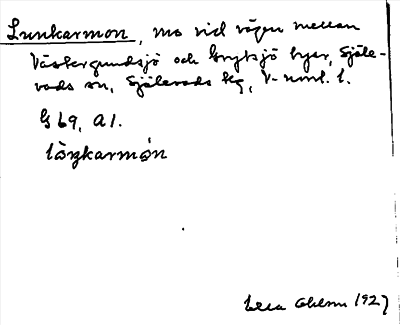 Lunkarmon, mo vid vägen mellan
Västergundsjö och Grytsjö byar, Själe-
vads sn, Själevads tg, V-norrl. l.
G 69, A1.
löŋkarmón
Ohlsson 1927